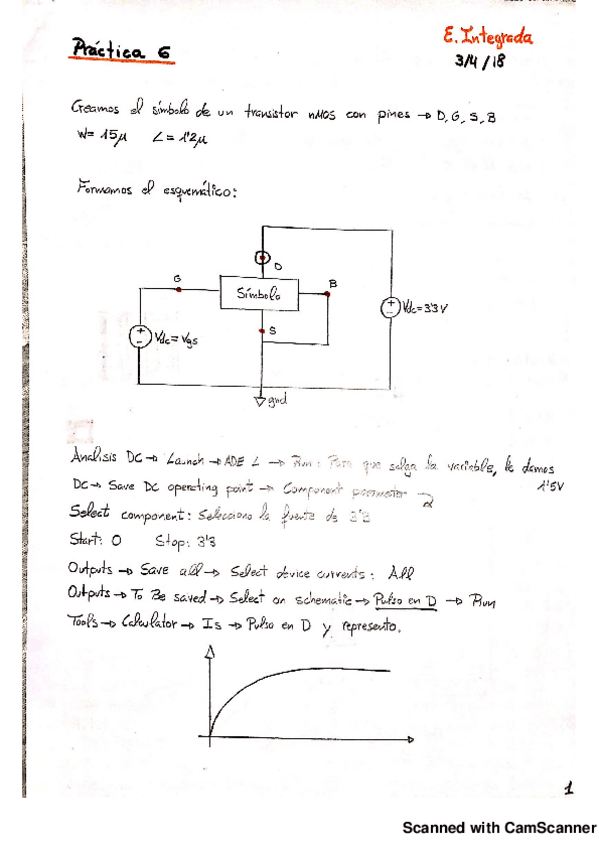 Práctica 6
E. Integrada
3/4/18
Creamos el símbolo de un transistor nMOS con pines → D, G, S, B
W= 15μ L= 1'2μ
Formamos el esquemático:
D
G
B
Símbolo
Vdc=3'3V
S
Vdc=Vgs
gnd
Analisis DC → Launch → ADE L → Run: Para que salga la variable, le damos
1'5V
DC → Save DC operating point → Component parameter
Select component: Selecciono la fuente de 3'3
Start: 0 Stop: 3'3
Outputs → Save all → Select device currents: All
Outputs → To Be saved → Select on schematic → Pulso en D → Run
Tools → Calculator → Is → Pulso en D y represento.
1
Scanned with CamScanner